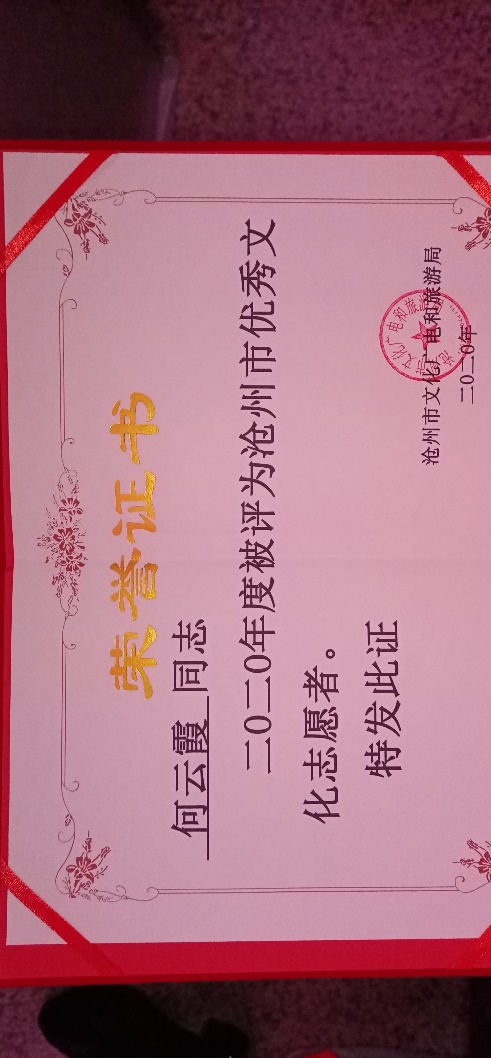 荣誉证书
何云霞 同志
二0二0年度被评为沧州市优秀文
化志愿者。
特发此证
沧州市文化广电和旅游局
二0二0年